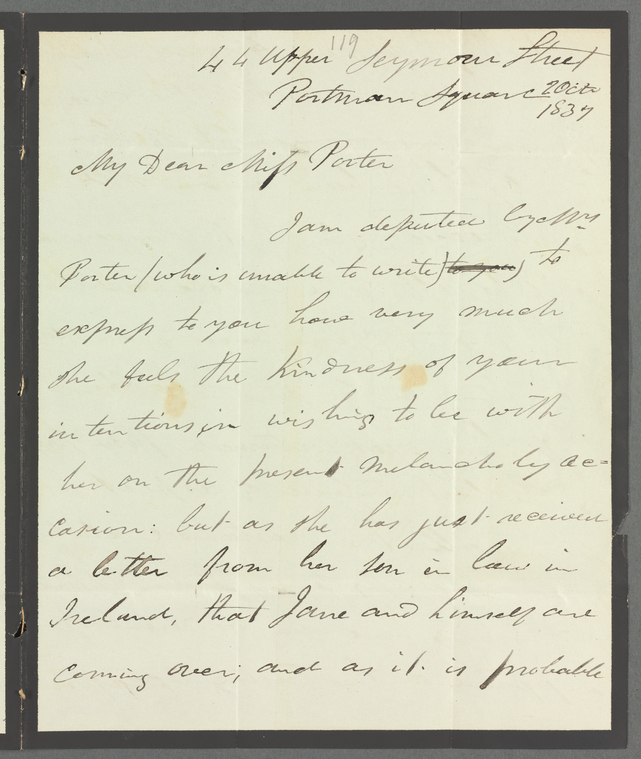 119
44 Upper Seymour Street
Portman Square 20 Octr
1837
My Dear Miss Porter
I am deputed by Mrs
Porter (who is unable to write) to you) to
express to you how very much
she feels the kindness of your
intentions, in wishing to be with
her on the present melancholy oc=
casion: but as she has just received
a letter from her son in law in
Ireland, that Jane and himself are
coming over; and as it is probable